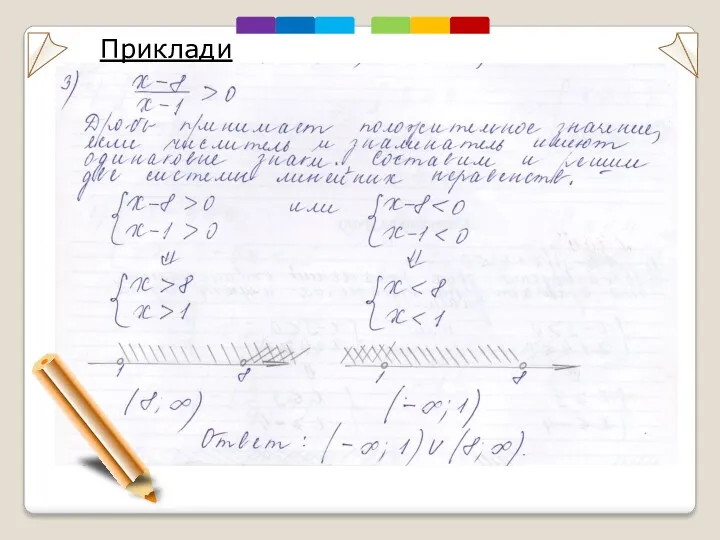 Приклади
3) x-8/x-1 > 0
Дробь принимает положительное значение,
если числитель и знаменатель имеют
одинаковые знаки. Составим и решим
две системы линейних неравенств.
{x-8>0 или {x-8<0
{x-1>0 {x-1<0
⇓ ⇓
{x>8 {x<8
{x>1 {x<1
1 8 1 8
(8; ∞) (-∞; 1)
Ответ: (-∞; 1) ∪ (8; ∞).